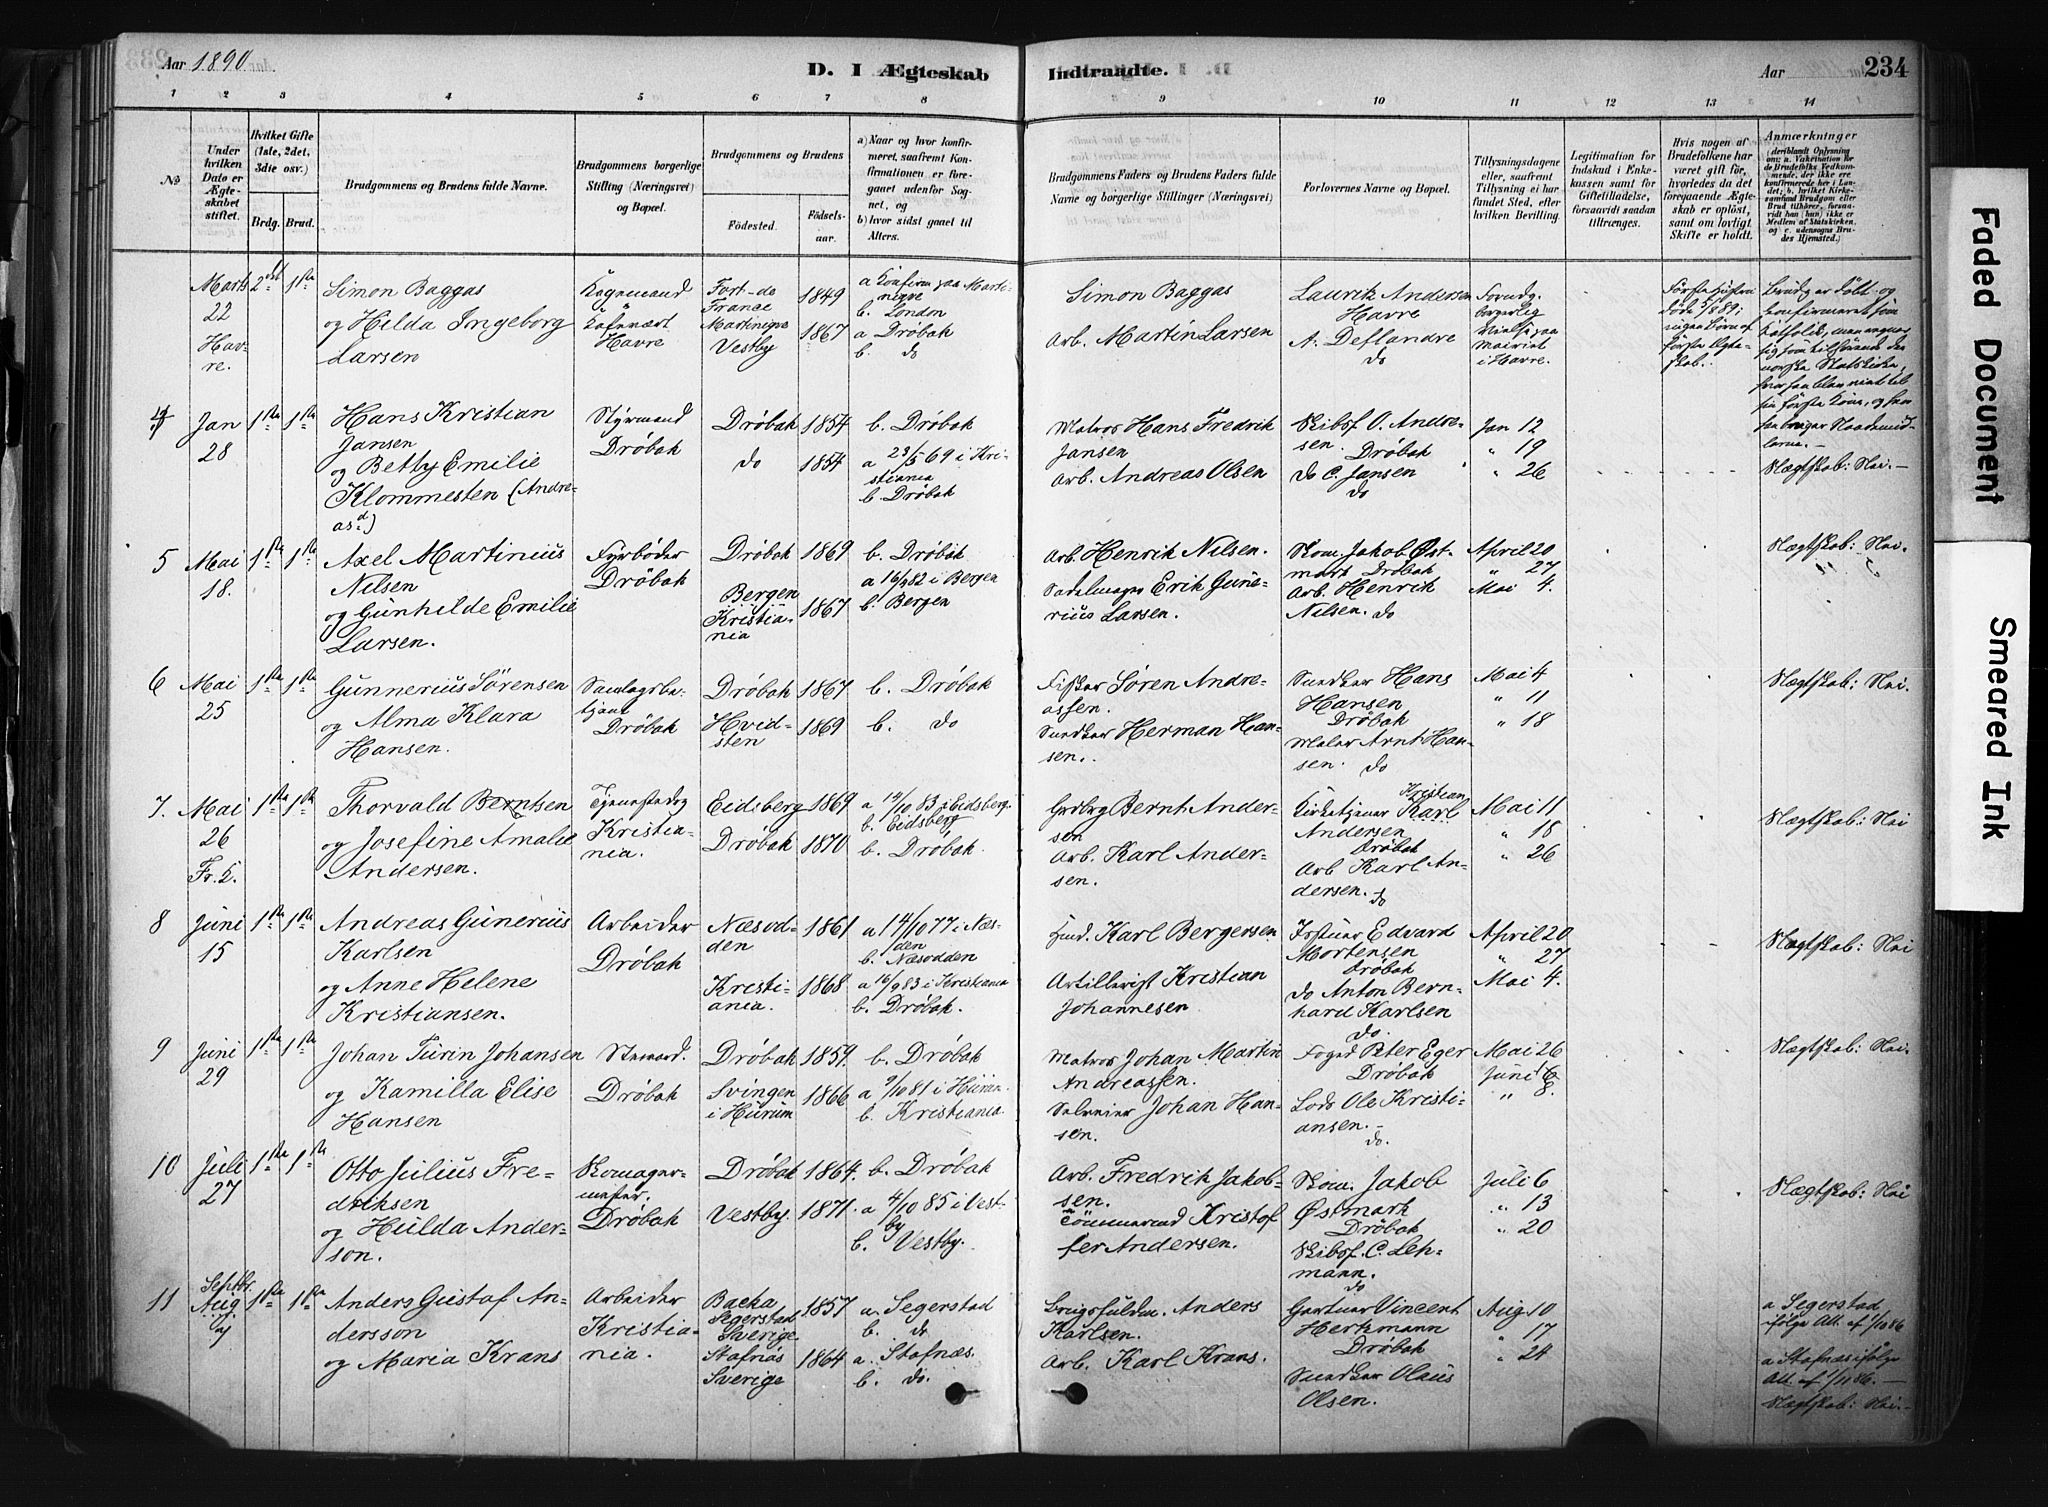 Aar 1890
D. I Ægteskab
Indtraadte.
Aar
234
1 2 3 4 5 6 7 8
8 9 10 11 12 13 14
No
Under hvilken Dato er Ægteskabet stiftet.
Hvilket Gifte (1ste, 2det, 3die osv.)
Brdg. Brud.
Brudgommens og Brudens fulde Navne.
Brudgommens borgerlige Stilling (Næringsvei) og Bopæl.
Brudgommens og Brudens
Fødested.
Fødselsaar.
a) Naar og hvor konfirmeret, saafremt Konfirmationen er foregaaet udenfor Sognet, og
b) hvor sidst gaaet til Alters.
Brudgommens Faders og Brudens Faders fulde Navne og borgerlige Stillinger (Næringsvei)
Forlovernes Navne og Bopæl.
Tillysningsdagene eller, saafremt Tillysning ei har fundet Sted, efter hvilken Bevilling.
Legitimation for Indskud i Enkekassen samt for Giftetilladelse, forsaavidt saadan tiltrænges.
Hvis nogen af Brudefolkene har været gift før, hvorledes da det foregaaende Ægteskab er opløst, samt om lovligt Skifte er holdt.
Anmærkninger
(deriblandt Oplysning om: a. Vaktination for de Brudefolks Vedkommende, der ikke ere konfirmerede her i Landet; b. hvilket Kirkesamfund Brudgom eller Brud tilhører, forsaavidt han (hun) ikke er Medlem af Statskirken, og c. udensogns Brudes Hjemsted.)
Marts 22 Havre.
2det 1ste
Simon Baggas
og Hilda Ingeborg
Larsen
Havre
Fort-de
France
Martinique
Vestby
1849
1867
a Konfirm. paa Martinique
b. London
a Drøbak
b. do
Simon Baggas
Arb. Martin Larsen
Laurits Andersen
Havre
A. Deflandre
do
i Havre.
4 Jan 28
1ste 1ste
Hans Kristian
Jansen
og Betty Emilie
Klommesten (Andreasd)
Styrmand
Drøbak
Drøbak
do
1854
1854
b. Drøbak
a 23/5 69 i Kristiania
b. Drøbak
Matros Hans Fredrik
Jansen
Arb. Andreas Olsen
Skibsf. O. Andresen
Drøbak
do C. Jansen
do
Jan 12
" 19
" 26
Slægtskab: Nei.
5 Mai 18.
1ste 1ste
Axel Martinius
Nilsen
og Gunhilde Emilie
Larsen.
Fyrbøder
Drøbak
Drøbak
Bergen
Kristiania
1869
1867
b. Drøbak
a 16/9 82 i Bergen
b. Bergen
Arb. Henrik Nilsen.
Sadelmager Erik Gunerius Larsen.
Skom. Jakob Østmark Drøbak
Arb. Henrik
Nilsen. do
April 20
" 27
Mai 4.
Slægtskab: Nei.
6 Mai 25
1ste 1ste
Gunnerius Sørensen
og Alma Klara
Hansen.
Samlagsbetjent
Drøbak
Drøbak
Hvidsten
1867
1869
b. Drøbak
b. do
Fisker Søren Andreassen.
Snedker Herman Hansen.
Snedker Hans
Hansen
Drøbak
Maler Arnt Hansen. do
Mai 4
" 11
" 18
Slægtskab: Nei.
7. Mai 26 Fr. K.
1ste 1ste
Thorvald Berntsen
og Josefine Amalie
Andersen.
Kristiania.
Eidsberg
Drøbak
1869
1870
a 14/10 83 i Eidsberg.
b. Eidsberg
b. Drøbak.
Grdbrg Bernt Andersen
Arb. Karl Andersen.
Kirketjener Kristian Karl
Andersen
Drøbak
Arb Karl Andersen. do
Mai 11
" 18
" 26
Slægtskab: Nei
8 Juni 15
1ste 1ste
Andreas Gunerius
Karlsen
og Anne Helene
Kristiansen.
Arbeider
Drøbak
Næsodden
Kristiania.
1861
1868
a 14/10 77 i Næsodden
b. Næsodden
a 16/9 83 i Kristiania
b. Drøbak.
Karl Bergersen
Artillerist Kristian
Johannesen
Edvard
Mortensen
Drøbak
do Anton Bernhard Karlsen
do.
April 20
" 27
Mai 4.
Slægtskab: Nei
9 Juni 29
1ste 1ste
Johan Turin Johansen
og Kamilla Elise
Hansen
Steward.
Drøbak
Drøbak
Svingen
i Hurum
1859.
1866
b. Drøbak
a 9/10 81 i Hurum.
b. Kristiania
Matros Johan Martin
Andreassen.
Selveier Johan Hansen.
Foged Peter Eger
Drøbak
Lods Ole Kristiansen.
do.
Mai 26
Juni 16
" 8.
Slægtskab: Nei.
10 Juli 27
1ste 1ste
Otto Julius Fredriksen
og Hulda Anderson.
Skomagermester.
Drøbak
Drøbak
Vestby.
1864.
1871.
b. Drøbak
a 4/10 85 i Vestby
b. Vestby.
Arb. Fredrik Jakobsen.
Tømmermd Kristoffer Andersen.
Skom. Jakob
Østmark
Drøbak
Skibsf. C. Lehmann.
do
Juli 6
" 13
" 20
Slægtskab: Nei
11 Septbr. Aug.
1ste 1ste
Anders Gustaf Andersson
og Maria Krans
Arbeider
Kristiania.
Backa
Segerstad
Sverige
Stafnäs
Sverige
1857
1864
a. Segerstad
b. do
a. Stafnæs.
b. do.
Anders
Karlsen.
Arb. Karl Krans.
Gartner Vincent
Herkmann
Drøbak
Snedker Olaus
Olsen.
Aug. 10
" 17
" 24
a Segerstad
ifølge Att. af 1/10 86
a Stafnæs ifølge
Att. af 1/11 86.
Slægtskab: Nei.
Faded Document
Smeared Ink